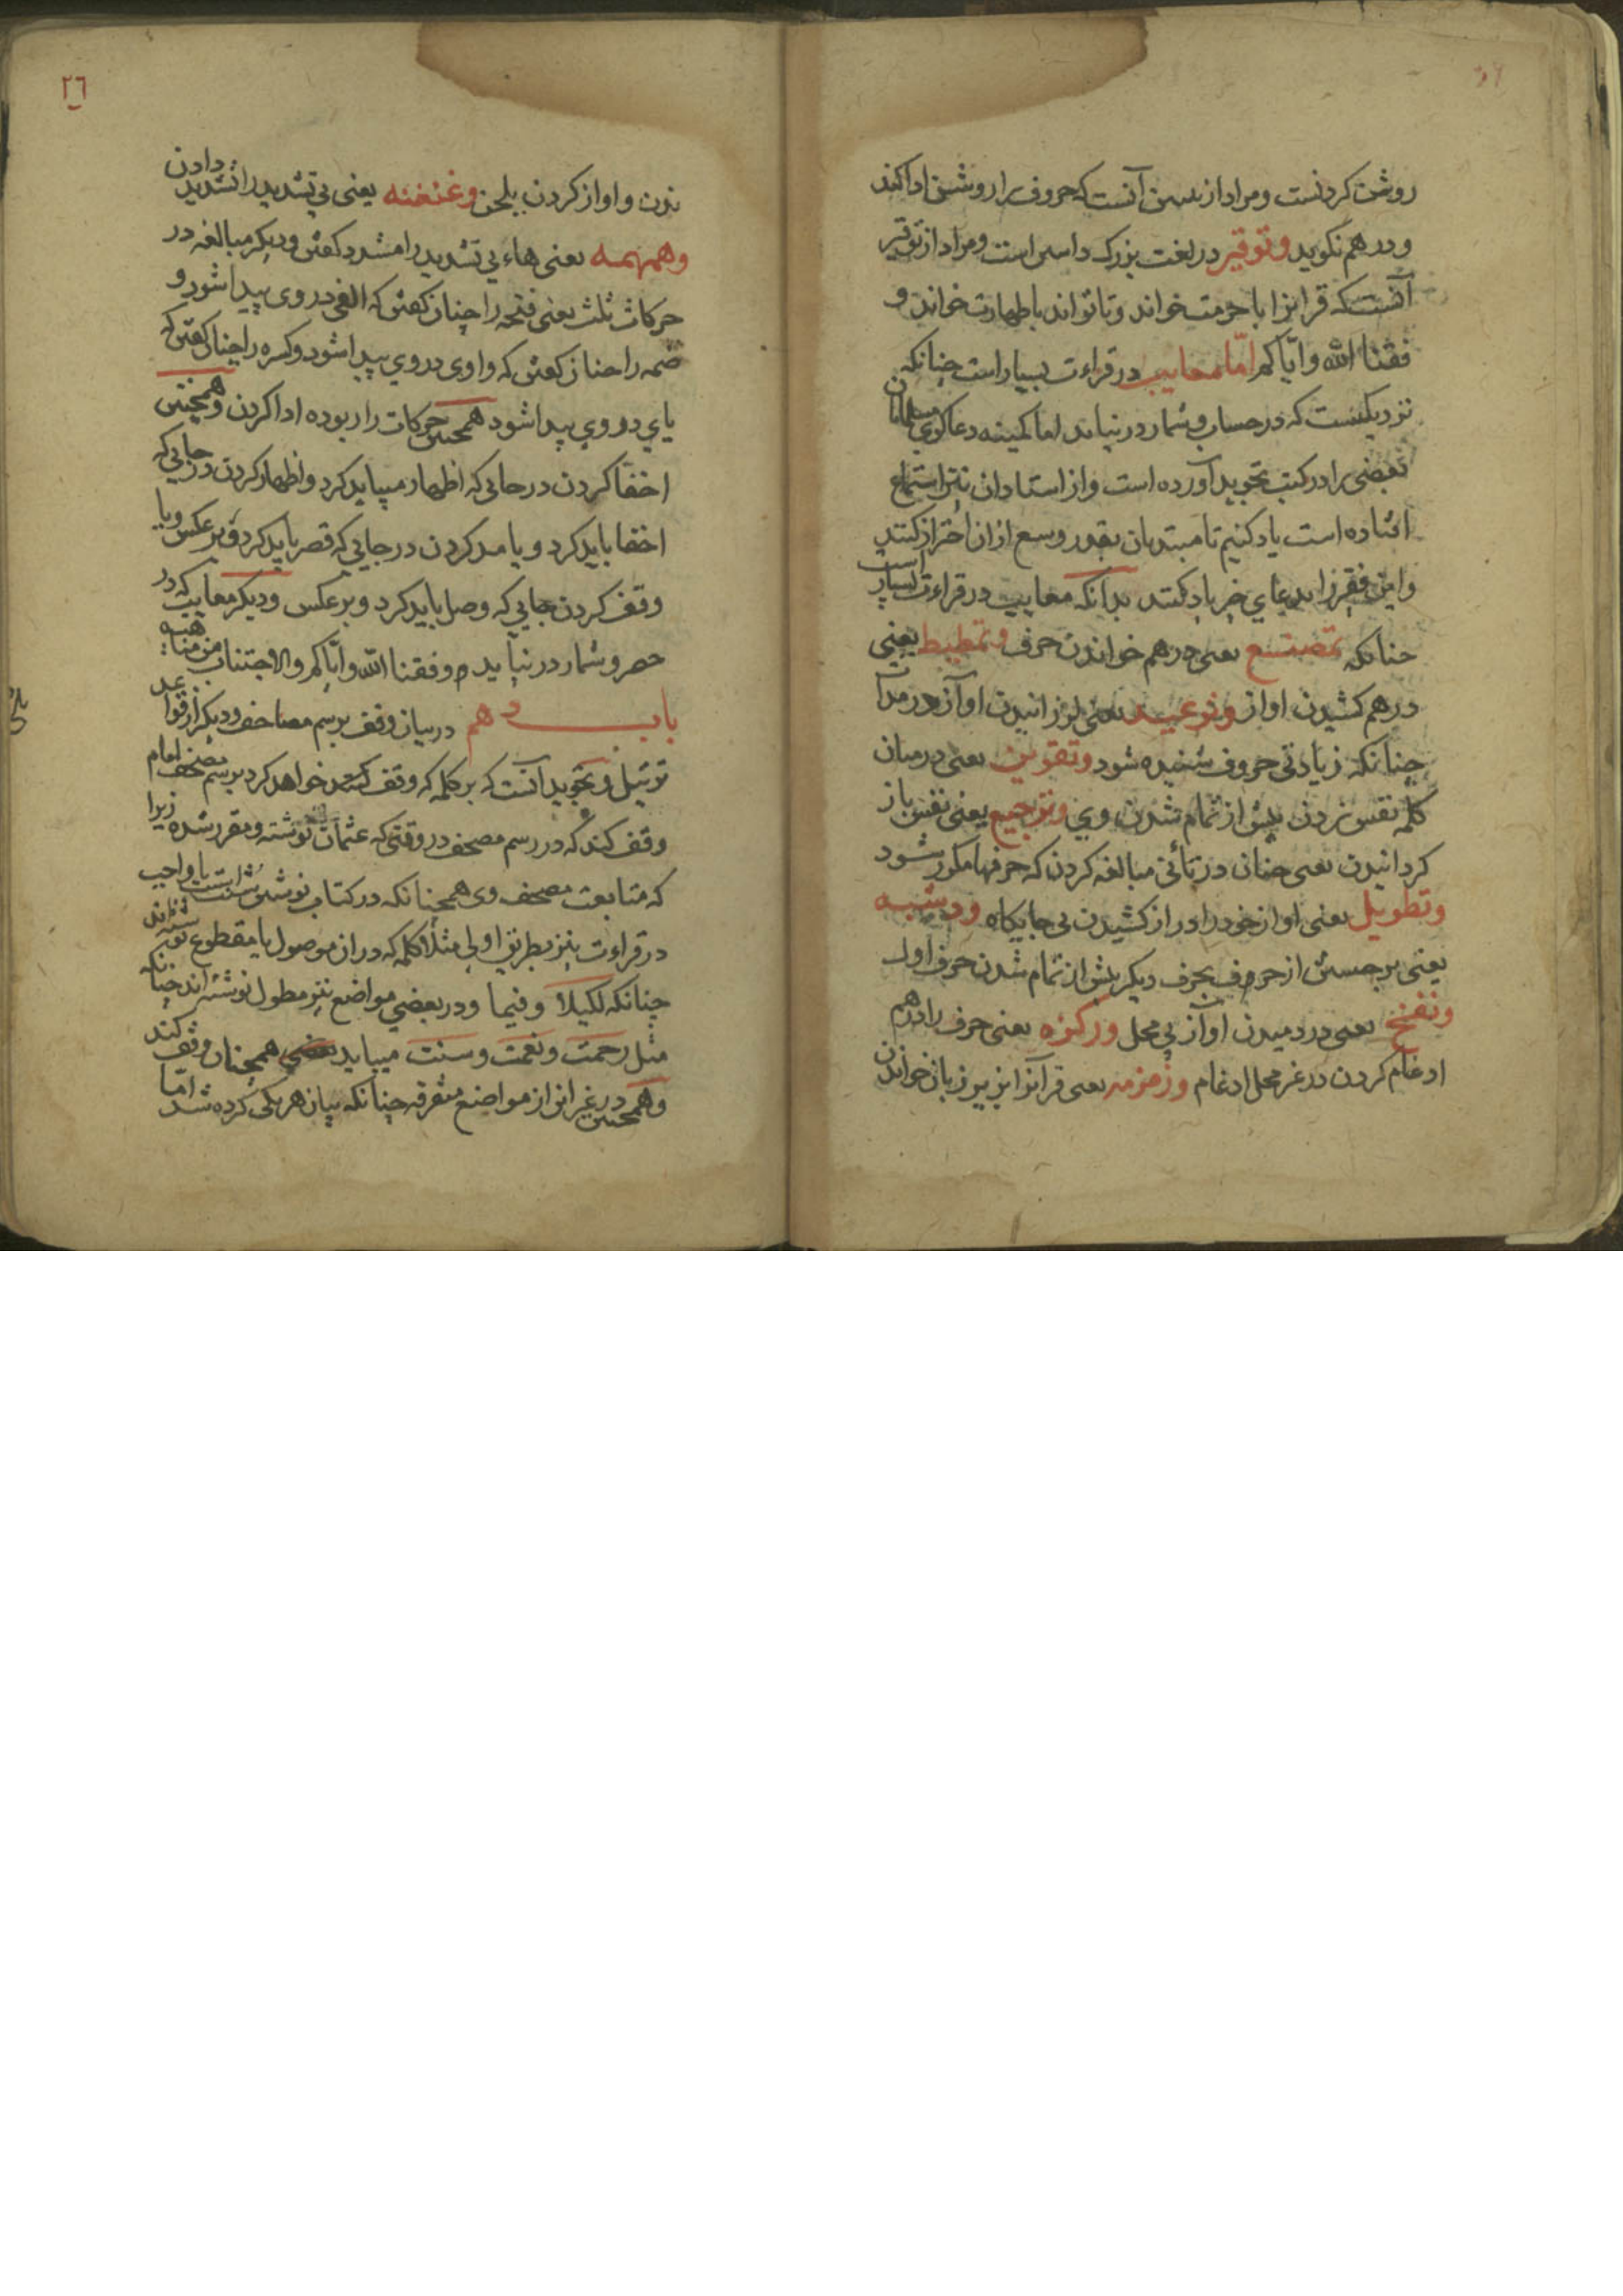 روشن کردنست ومراد از تبیین آنست که حروف را روشن ادا کند
ودر هم نکوید وتوقیر در لغت بزرک داشتن است ومراد از توقیر
آنست که قرانرا با حرمت خواند وتا تواند با طهارت خواند و
فقنا الله وایّاکم امّا معایب در قراءت بسیار است چنانکه
نزدیکست که در حساب وشمار در نیاید اما کمینه دعاکوی مسلمانان
بعضی را در کتب تجوید آورده است واز استادان نیز استماع
افتاده است یاد کنیم تا مبتدیان بقدر وسع از ان احتراز کنند
واین فقیر را بدعای خیر یاد کنند بدانکه معایب در قراءت بسیار است
چنانکه تمضیغ یعنی در هم خواندن حرف وتمطیط یعنی
در هم کشیدن اواز وترعید یعنی لرزانیدن اواز در مدات
چنانکه زیادتی حروف شنیده شود یعنی در میان
کلمه نفس زدن پیش از تمام شدن وی وترجیع یعنی نفس باز
کردانیدن یعنی چنان در تأنی مبالغه کردن که حرفها مکرر شود
وتطویل یعنی اواز خود را دراز کشیدن بی جایکاه ووثبه
یعنی برجستن از حروف بحرف دیکر پیش از تمام شدن حرف اول
ونفخ یعنی در دمیدن اواز بی محل ورکزه یعنی حرف را در هم
ادغام کردن در غیر محل ادغام وزمزمه یعنی قرآنرا بزیر زبان خواندن
٢٦
ندن واواز کردن بلحن وغنغنه یعنی بی تشدید را تشدید دادن
وهمهمه یعنی هاء بی تشدید را مشدد کفتن ودیکر مبالغه در
حرکات ثلث یعنی فتحه را چنان کفتن که الفی در وی پیدا شود و
ضمه را چنان کفتن که واوی در وی پیدا شود وکسره را چنان کفتن که
یای در وی پیدا شود همچنین حرکات را ربوده ادا کردن وهمچنین
اخفا کردن در جایی که اظهار میباید کرد واظهار کردن در جایی که
اخفا باید کرد ویا مد کردن در جایی که قصر باید کرد وبرعکس ویا
وقف کردن جایی که وصل باید کرد وبرعکس ودیکر معایب که در
حصر وشمار در نیاید وفقنا الله وایّاکم والاجتناب من مناهیه
باب دهم در بیان وقف برسم مصاحف ودیکر از قواعد
ترتیل وتجوید آنست که بر کلمه که وقف خواهد کرد برسم مصحف امام
وقف کند که در رسم مصحف در وقتی که عثمان نوشته ومقرر شده زیرا
که متابعت مصحف وی همچنانکه در کتاب نوشتن سنّت است یا واجب
در قراءت نیز بطریق اولی مثلا کلمه که در ان موصول یا مقطوع نوشته اند
چنانکه لکیلا وفیما ودر بعضی مواضع نیز مطول نوشته اند چنانکه
مثل رحمت ونعمت وسنت میباید همچنان وقف کند
وهمچنین در غیر این از مواضع متفرقه چنانکه بیان هر یکی کرده شد امّا